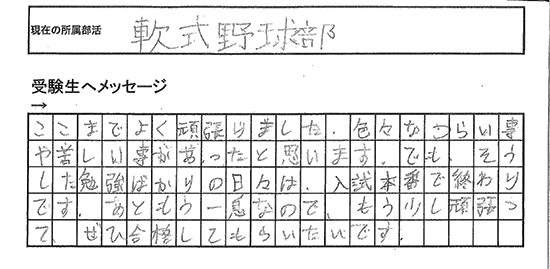 現在の所属部活 軟式野球部
受験生へメッセージ
→
ここまでよく頑張りました。色々なつらい事
や苦しい事があったと思います。でも、そう
した勉強ばかりの日々は、入試本番で終わり
です。あともう一息なので、もう少し頑張っ
て、ぜひ合格してもらいたいです。